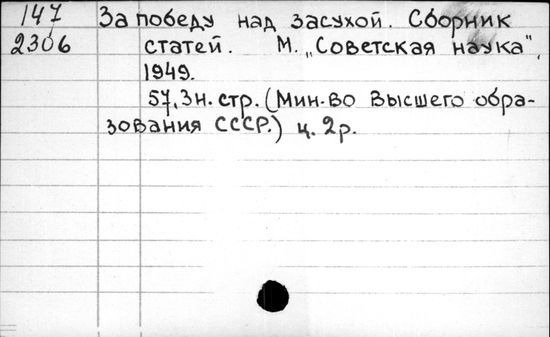 147 За победу над засухой. Сборник
2306 статей. М. „Советская наука",
1949.
57,3н. стр. (Мин-во Высшего обра-
зования СССР.) ц. 2р.